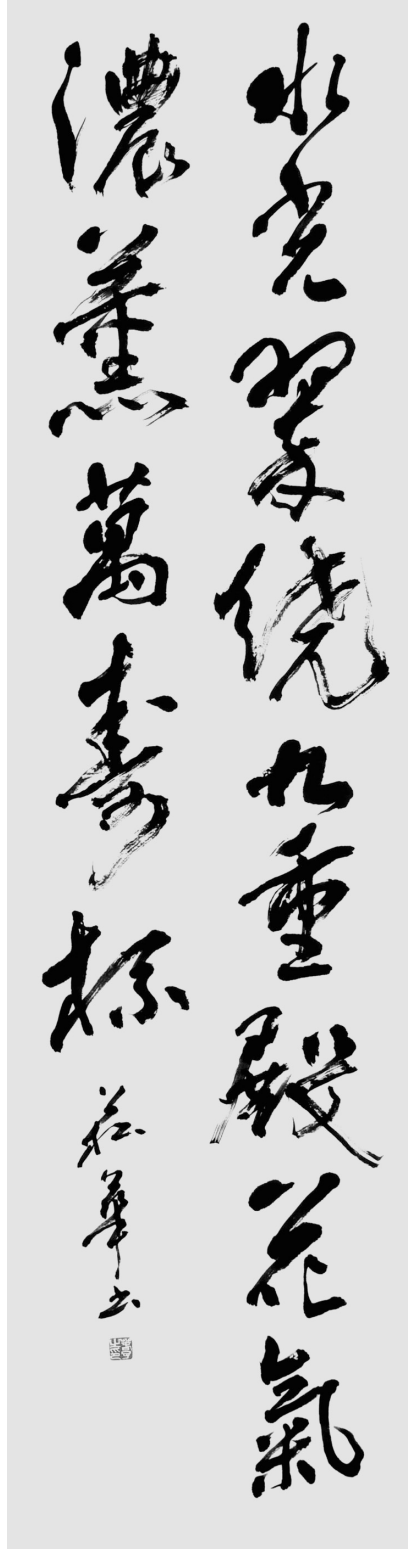 水光翠繞九重殿花氣
濃薰萬壽
華書